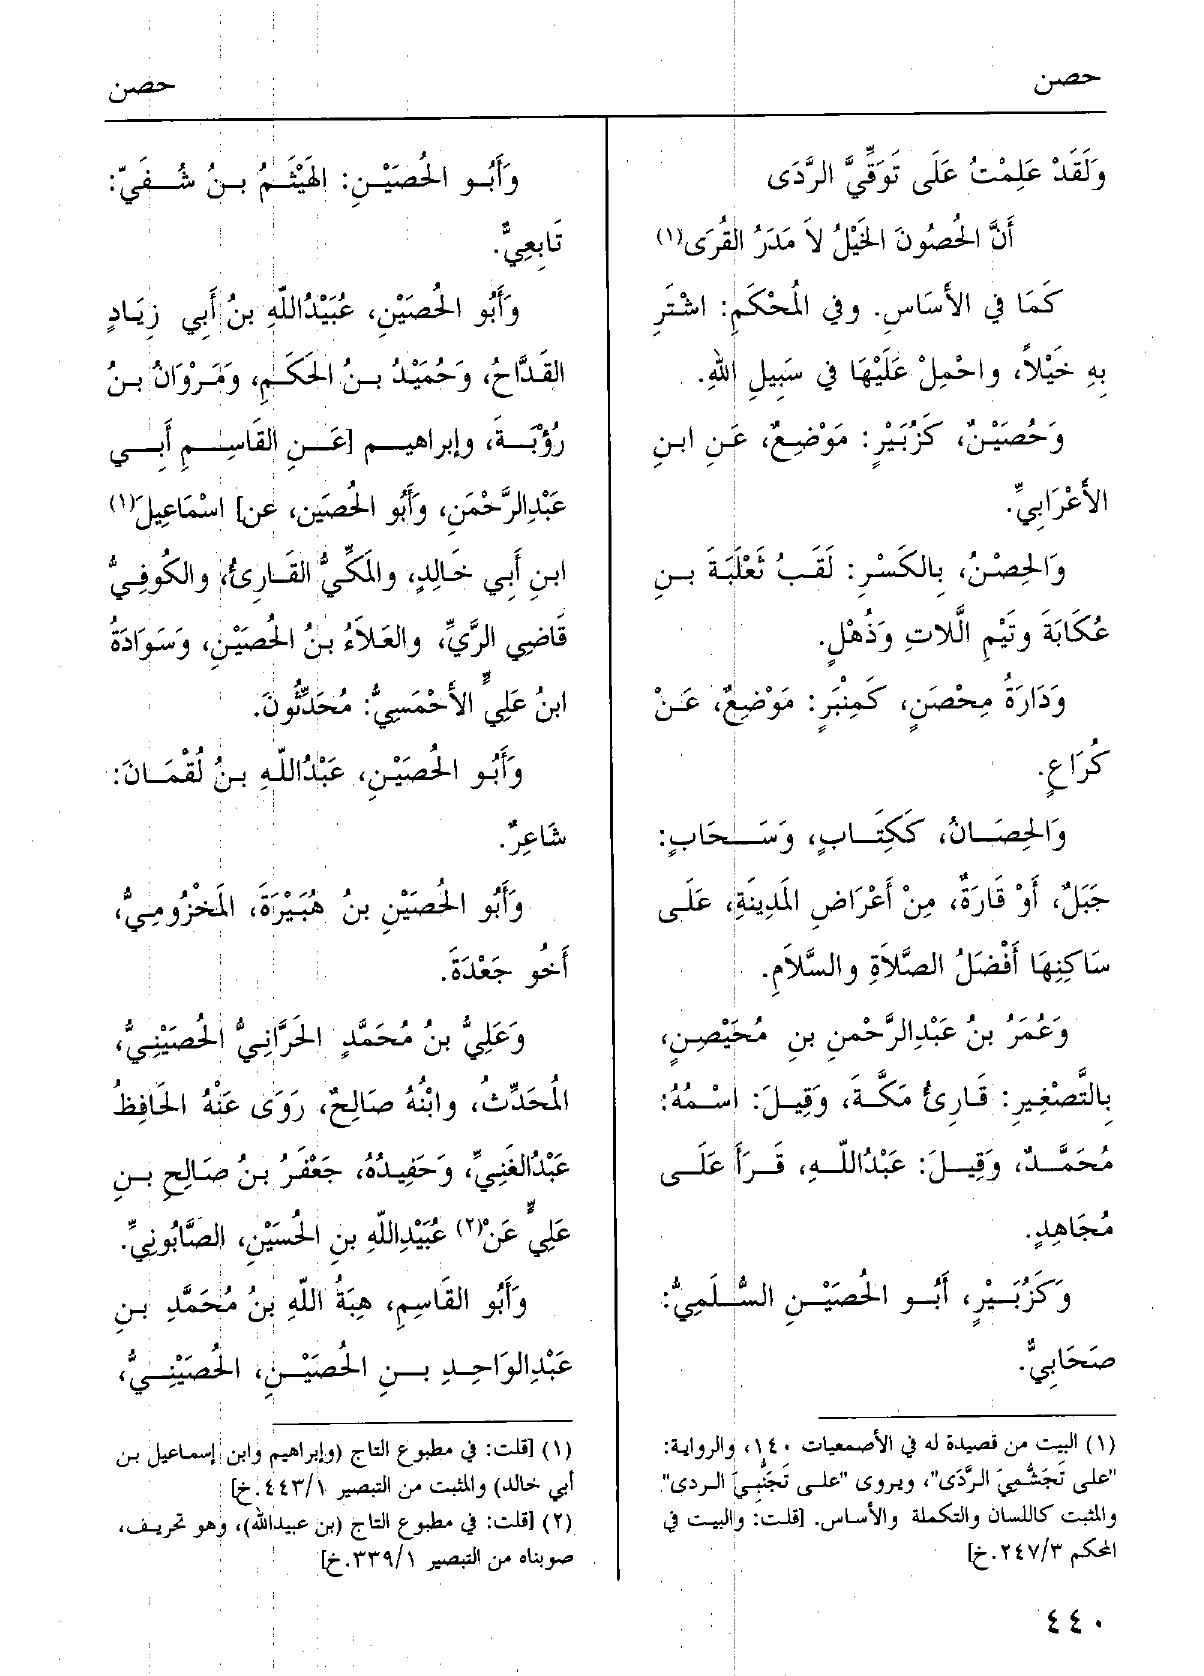 حصن
حصن
وَلَقَدْ عَلِمْتُ عَلَى تَوَقِّيَّ الرَّدَى
أَنَّ الحُصُونَ الخَيْلُ لاَ مَدَرُ القُرَى(١)
كَمَا في الأسَاسِ. وفي المُحْكَمِ: اشْتَرِ
بِهِ خَيْلاً، واحْمِلْ عَلَيْهَا في سَبِيلِ اللهِ.
وَحُصَيْنٌ، كَزُبَيْرٍ: مَوْضِعٌ، عَنِ ابنِ
الأَعْرَابِيِّ.
وَالحِصْنُ، بِالكَسْرِ: لَقَبُ ثَعْلَبَةَ بنِ
عُكَابَةَ وتَيْمِ الَّلاتِ وَذُهْلٍ.
وَدَارَةُ مِحْصَنٍ، كَمِنْبَرٍ: مَوْضِعٌ، عَنْ
كُرَاعٍ.
وَالحِصَانُ، كَكِتَابٍ، وَسَحَابٍ:
جَبَلٌ، أَوْ قَارَةٌ، مِنْ أَعْرَاضِ المَدِينَةِ، عَلَى
سَاكِنِهَا أَفْضَلُ الصَّلاَةِ والسَّلاَمِ.
وَعُمَرُ بنُ عَبْدِالرَّحْمنِ بنِ مُحَيْصِنٍ،
بِالتَّصْغِيرِ: قَارِئُ مَكَّةَ، وَقِيلَ: اسْمُهُ:
مُحَمَّدٌ، وَقِيلَ: عَبْدُاللّهِ، قَرَأَ عَلَى
مُجَاهِدٍ.
وَكَزُبَيْرٍ، أَبُو الحُصَيْنِ السُّلَمِيُّ:
صَحَابِيٌّ.
(١) البيت من قصيدة له في الأصمعيات ١٤٠، والرواية:
"على تَجَشُّمِيَ الرَّدَى"، ويروى "على تَجَنُّبِيَ الردى"
والمثبت كاللسان والتكملة والأساس. [قلت: والبيت في
المحكم ٢٤٧/٣.خ]
وَأَبُو الحُصَيْنِ: الهَيْثَمُ بنُ شُفَيّ:
تَابِعِيٌّ.
وَأَبُو الحُصَيْنِ، عُبَيْدُاللّهِ بنُ أَبِي زِيَادٍ
القَدَّاحُ، وَحُمَيْدُ بنُ الحَكَمِ، وَمَرْوَانُ بنُ
رُؤْبَةَ، وإبراهيم [عَنِ القَاسِمِ أَبِي
عَبْدِالرَّحْمَنِ، وَأَبُو الحُصَين، عن] اسْمَاعِيلَ(١)
ابنِ أَبِي خَالِدٍ، والمَكِّيُّ القَارِئُ، والكُوفِيُّ
قَاضِي الرَّيِّ، والعَلاَءُ بنُ الحُصَيْنِ، وَسَوَادَةُ
ابنُ عَلِيٍّ الأَحْمَسِيُّ: مُحَدِّثُونَ.
وَأَبُو الحُصَيْنِ، عَبْدُاللّهِ بنُ لُقْمَانَ:
شَاعِرٌ.
وَأَبُو الحُصَيْنِ بنُ هُبَيْرَةَ، المَخْزُومِيُّ،
أَخُو جَعْدَةَ.
وَعَلِيُّ بنُ مُحَمَّدٍ الحَرَّانِيُّ الحُصَيْنِيُّ،
المُحَدِّثُ، وابْنُهُ صَالِحٌ، رَوَى عَنْهُ الحَافِظُ
عَبْدُالغَنِيِّ، وَحَفِيدُهُ، جَعْفَرُ بنُ صَالِحِ بنِ
عَلِيٍّ عَنْ(٢) عُبَيْدِاللّهِ بنِ الحُسَيْنِ، الصَّابُونِيِّ.
وَأَبُو القَاسِمِ، هِبَةُ اللّهِ بنُ مُحَمَّدِ بنِ
عَبْدِالوَاحِدِ بنِ الحُصَيْنِ، الحُصَيْنِيُّ،
(١) [قلت: في مطبوع التاج (وإبراهيم وابن إسماعيل بن
أبي خالد) والمثبت من التبصير ٤٤٣/١.خ]
(٢) [قلت: في مطبوع التاج (بن عبيدالله)، وهو تحريف،
صوبناه من التبصير ٣٣٩/١.خ]
٤٤٠